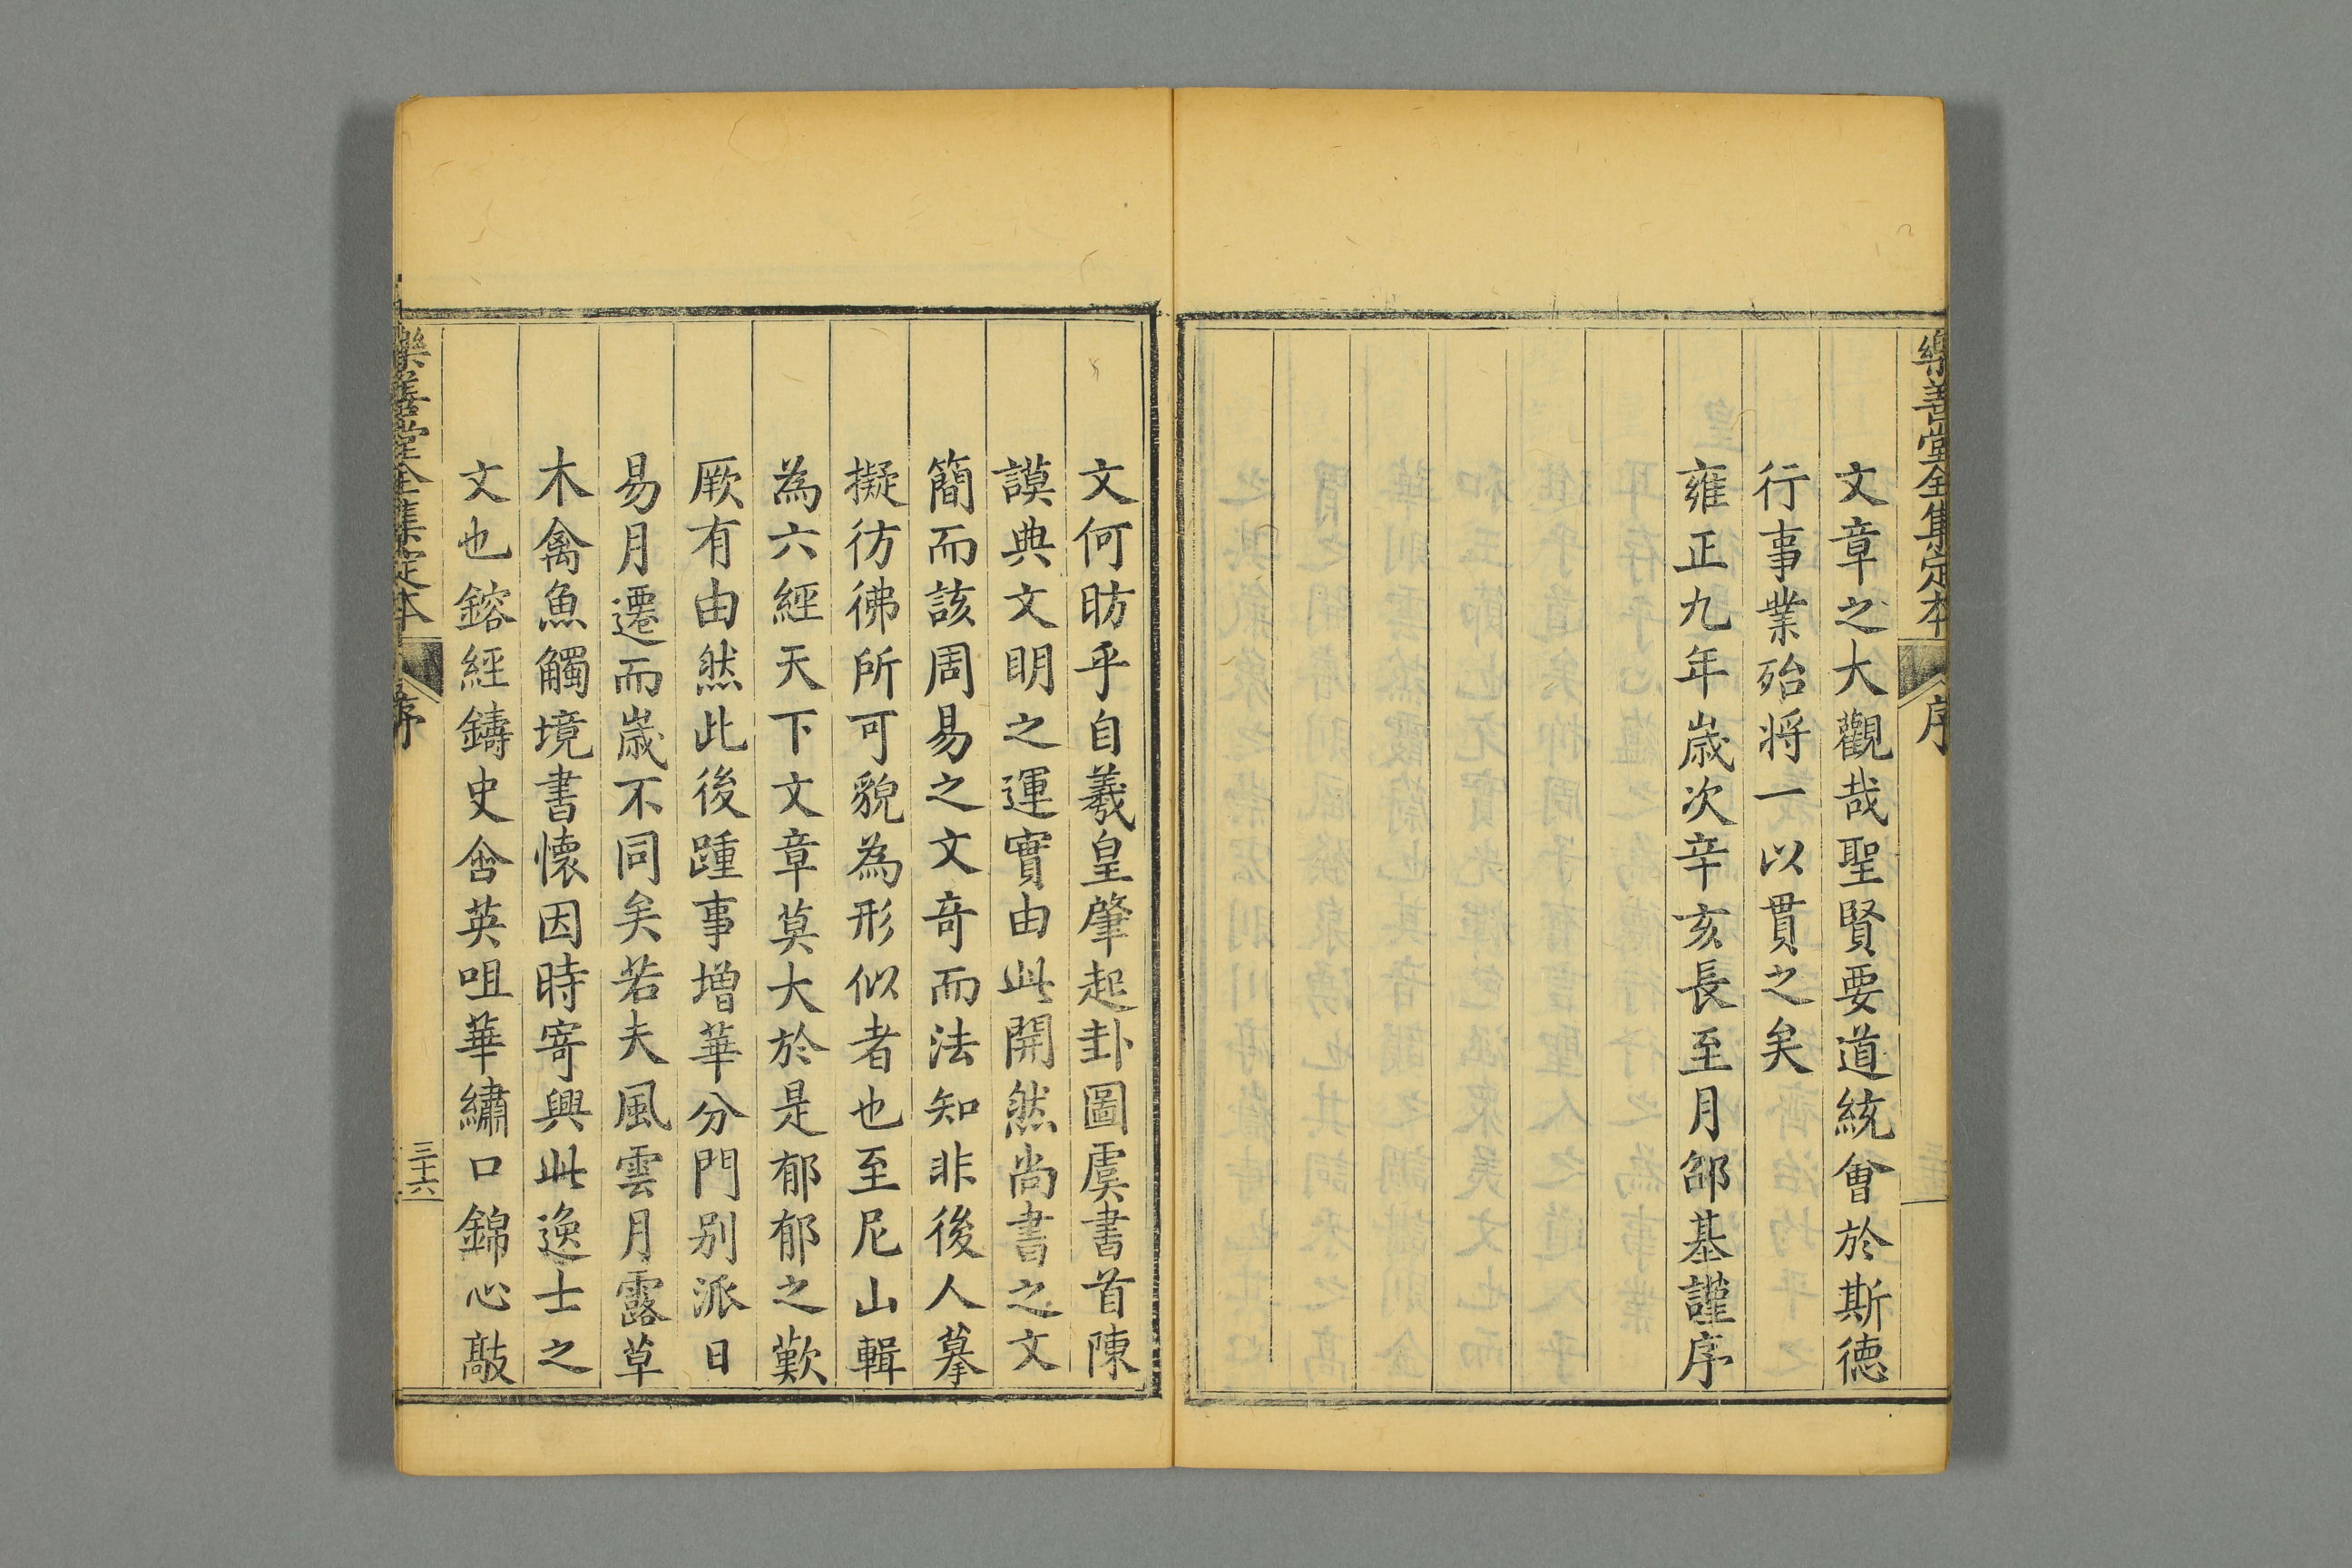 樂善堂全集定本
序
文章之大觀哉聖賢要道統會於斯德
行事業殆将一以貫之矣
雍正九年歳次辛亥長至月邵基謹序
文何昉乎自羲皇肇起卦圖虞書首陳
謨典文明之運實由此開然尚書之文
簡而該周易之文奇而法知非後人摹
擬彷彿所可貌為形似者也至尼山輯
為六經天下文章莫大於是郁郁之歎
厥有由然此後踵事增華分門别派日
易月遷而嵗不同矣若夫風雲月露草
木禽魚觸境書懷因時寄興此逸士之
文也鎔經鑄史含英咀華繡口錦心敲
樂善堂全集定本
序
三十六